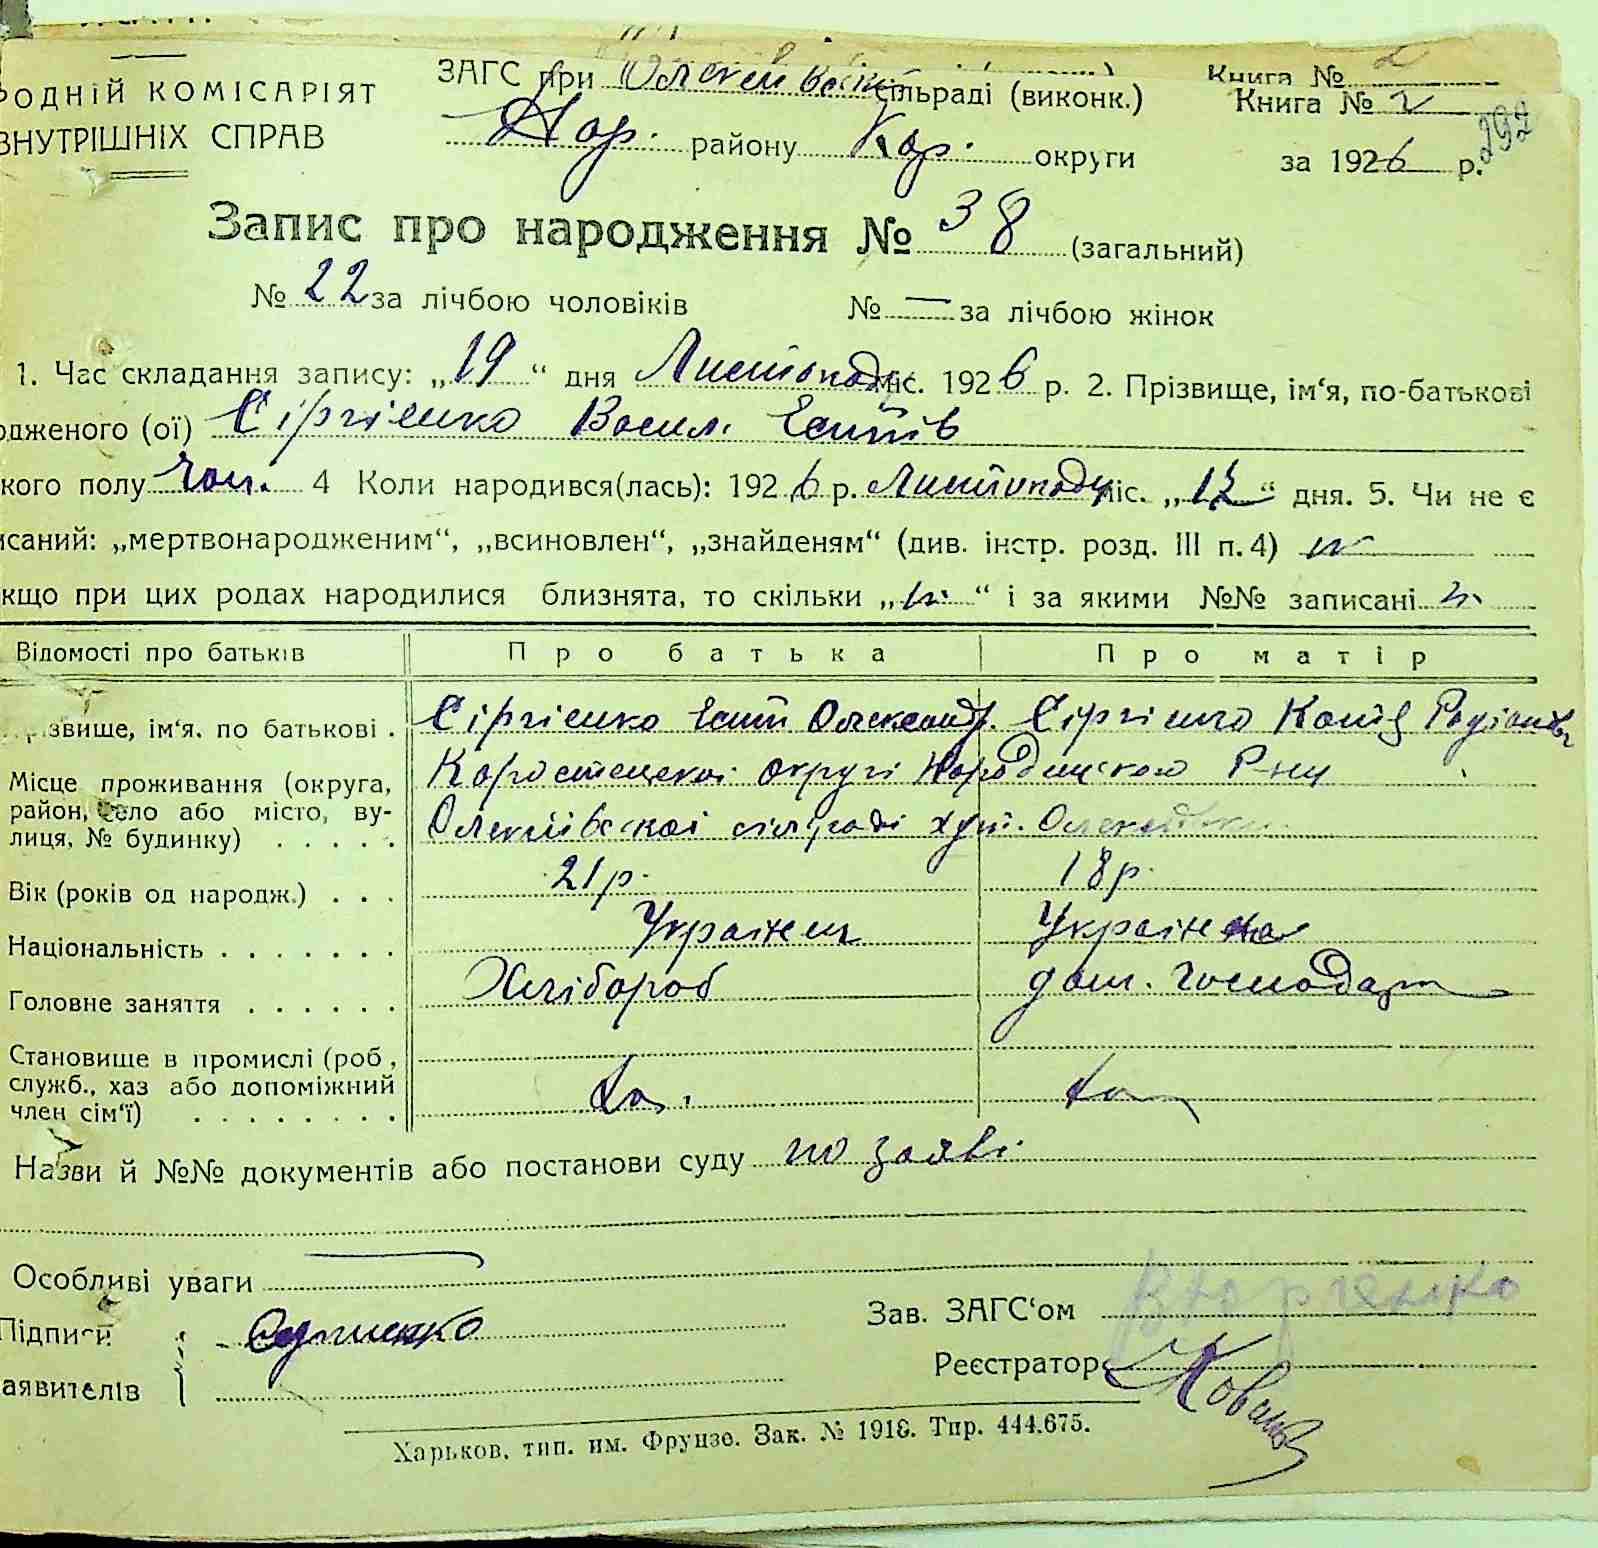 ОДНІЙ КОМІСАРІЯТ
ВНУТРІШНІХ СПРАВ
ЗАГС при Олексіївскі сільраді (виконк.)
Нар. району Кор. округи
Книга №
Книга № 2
за 1926 р.
292
Запис про народження № 38 (загальний)
№ 22 за лічбою чоловіків № — за лічбою жінок
1. Час складання запису: „19“ дня Листопаду міс. 1926 р. 2. Прізвище, ім‘я, по-батькові
одженого (ої) Сіргієнко Васил. Есипів
кого полу чол. 4 Коли народився(лась): 1926 р. Листопаду міс. „12“ дня. 5. Чи не є
исаний: „мертвонародженим“, „всиновлен“, „знайденям“ (див. інстр. розд. III п. 4)
кщо при цих родах народилися близнята, то скільки „н.“ і за якими №№ записані н.
Відомості про батьків Про батька Про матір
звище, ім‘я. по батькові . Сіргієнко Есип Олександ. Сіргієнко Родіонов
Місце проживання (округа, район, село або місто, вулиця, № будинку) . . . . .
Коростенскої округі Народицького Р-ну
Олексіївскої сільраді хут. Олексіївки
Вік (років од народж.) . . . 21 р. 18 р.
Національність . . . . . . . Українец Українка
Головне заняття . . . . . . Хлібороб дом. господар
Становище в промислі (роб, служб., хаз або допоміжний член сім‘ї) . . . . . . . .
Назви й №№ документів або постанови суду по заяві
Особливі уваги —
Підписи
аявителів
Зав. ЗАГС‘ом
Реєстратор
Харьков, тип. им. Фрунзе. Зак. № 1918. Тир. 444.675.